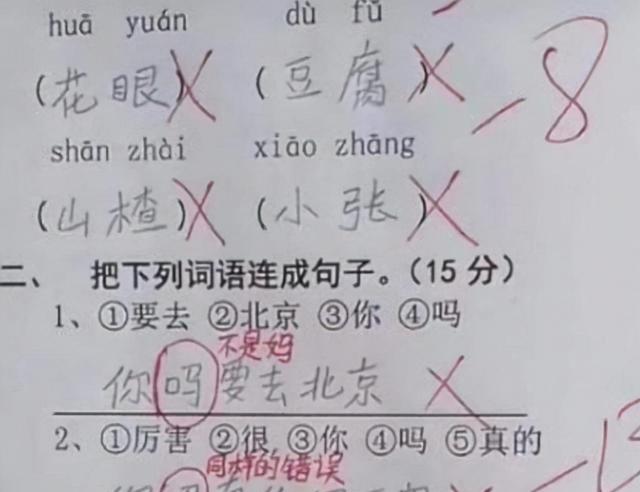 huā yuán dù fǔ
(花眼) (豆腐)
-8
shān zhài xiāo zhāng
(山楂) (小张)
二、 把下列词语连成句子。(15分)
1、①要去 ②北京 ③你 ④吗
不是妈
你吗要去北京
2、①厉害 ②很 ③你 ④吗 ⑤真的
同样的错误